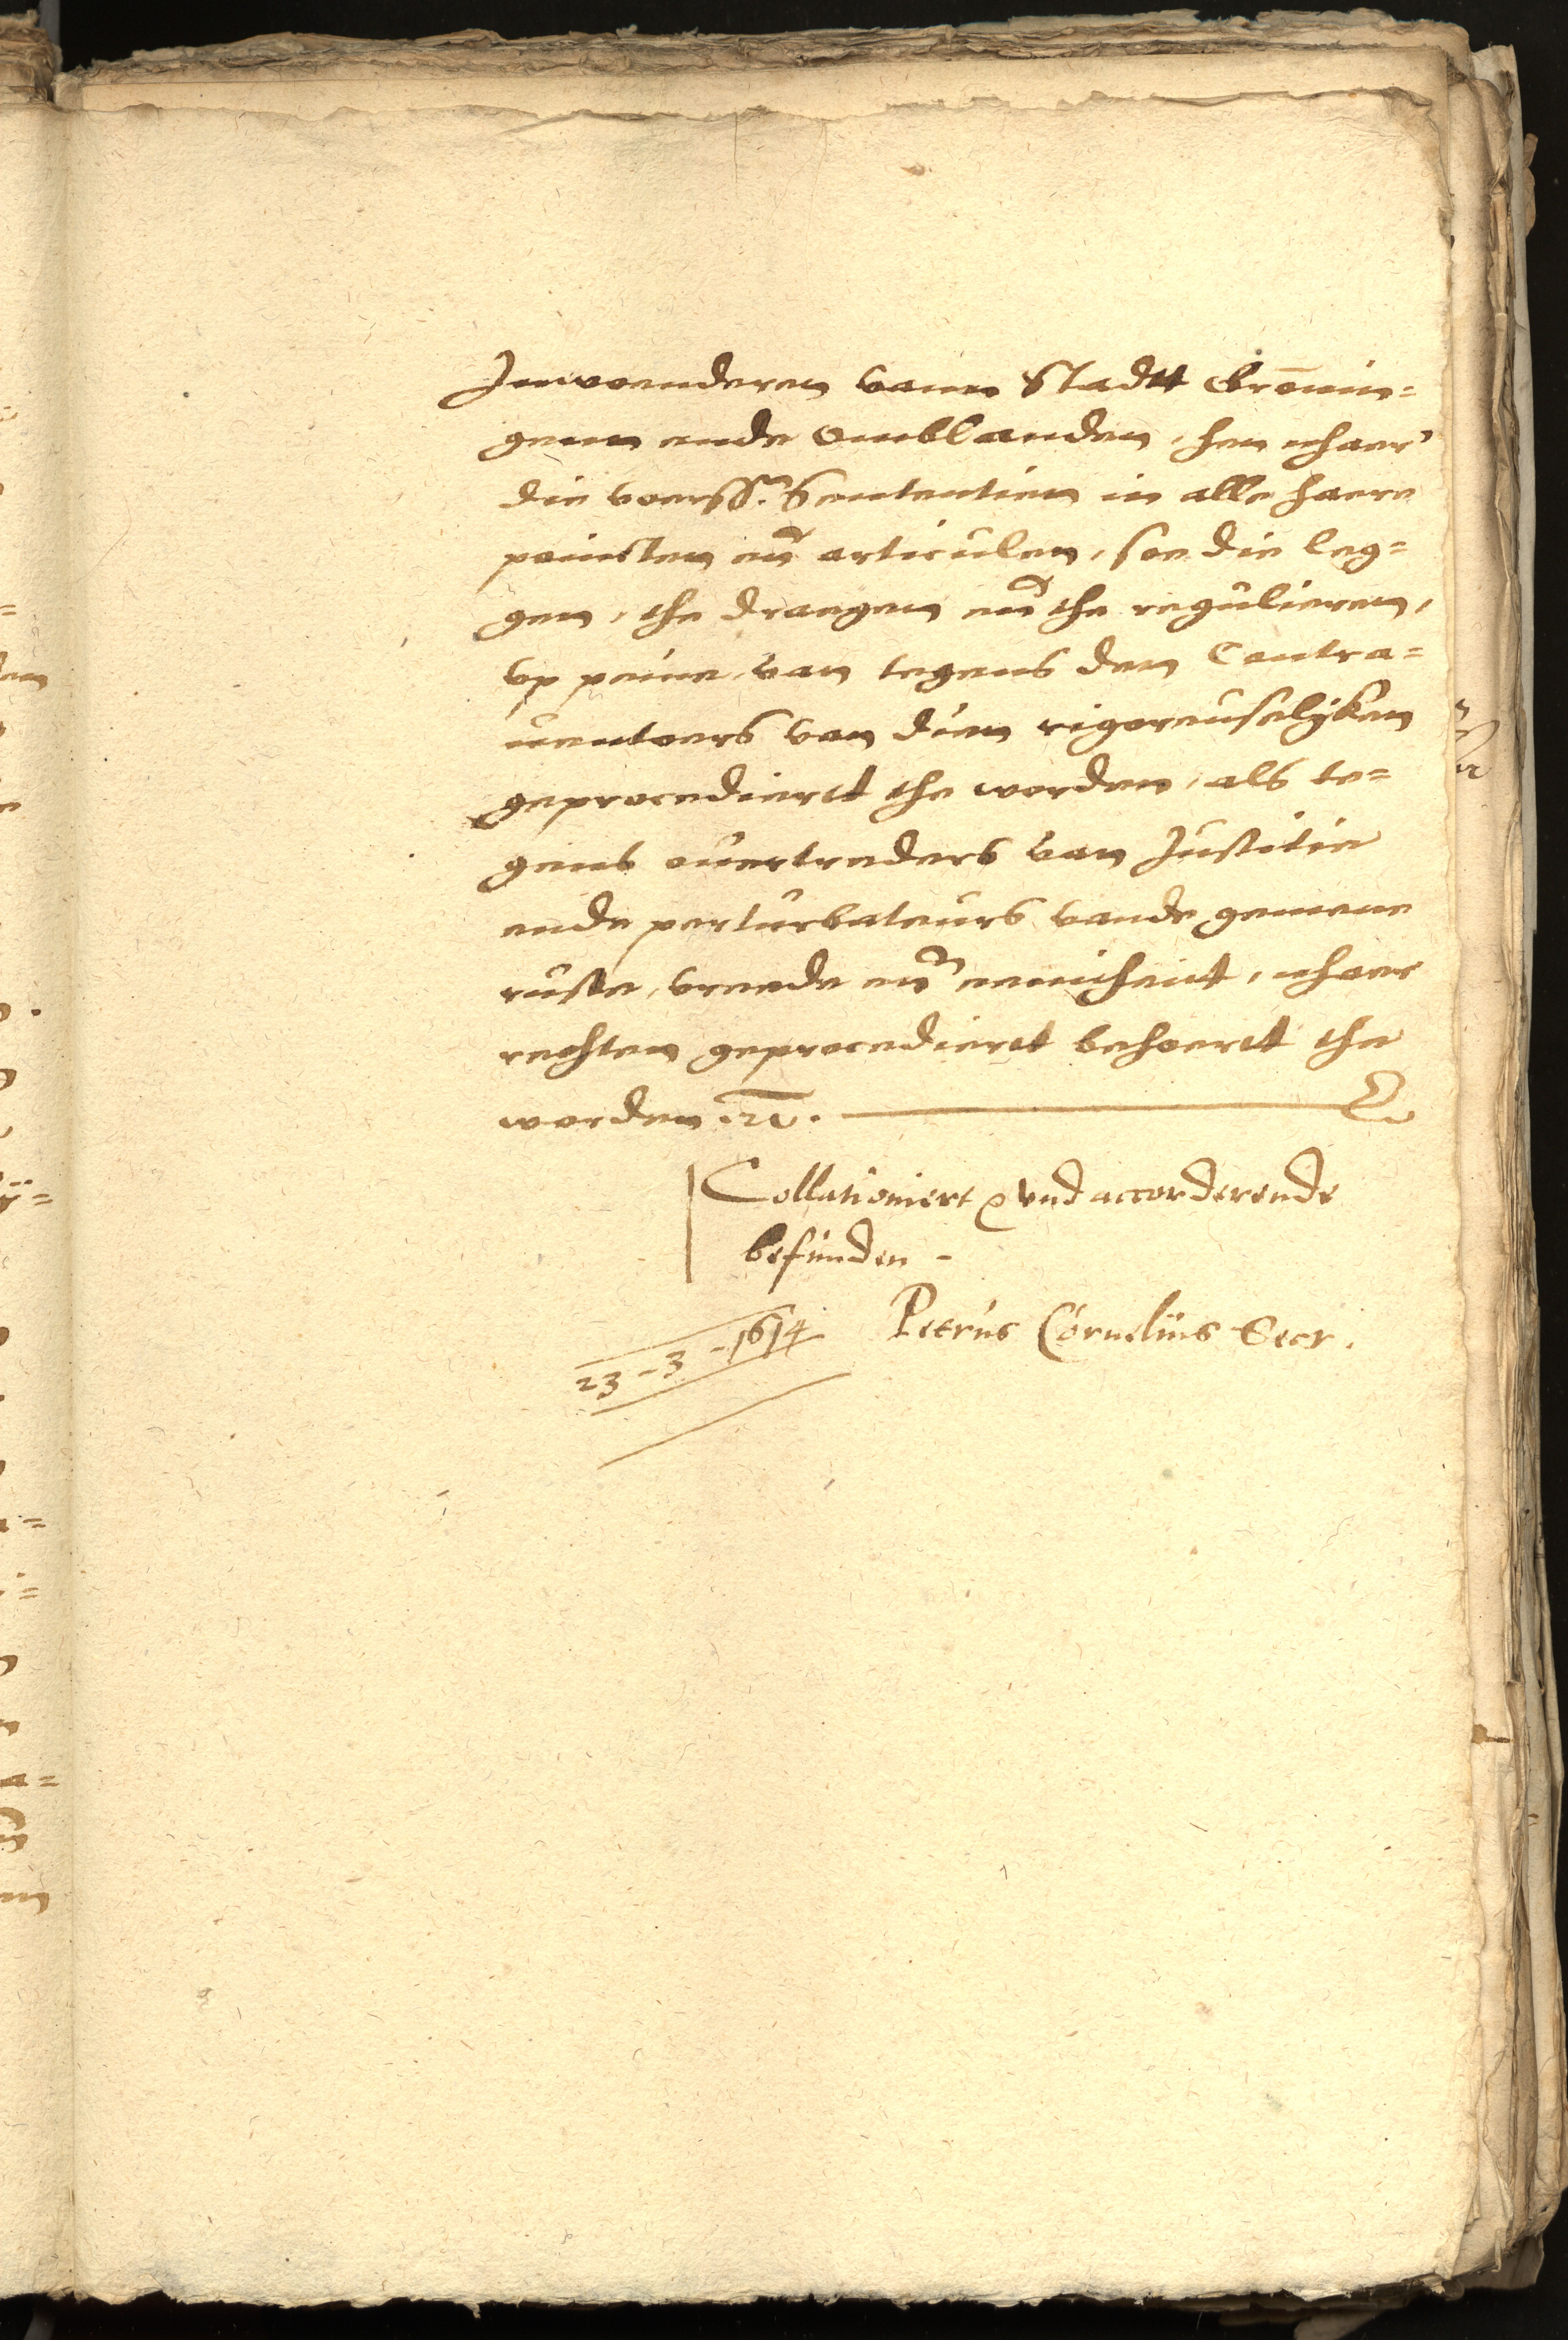 Inwoenderen vann Stadtt Grōnin=
genn ende Omblanden, hen nhaer
die voerss. Sententien in alle haere
poincten eñ articulen, soe die leg=
gen, the draegen eñ the regulieren,
vp peine van tegens den Contra=
uentoers van dien rigoreuselijken
geprocediertt the worden, als te=
gens ouertreders van Justitie
ende perturbateurs vande gemene
ruste, vreede eñ eenicheit, nhaer
rechten geprocediertt behoertt the
worden etc.
Collationiert vnd accorderende
befunden -
23-3-1614 Petrus Cornelius Secr.